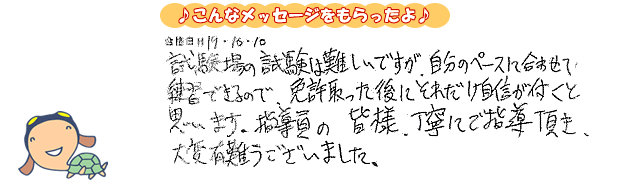 ♪こんなメッセージをもらったよ♪
19・10・10
試験場の試験は難しいですが、自分のペースに合わせて
練習できるので、免許取った後にそれだけ自信が付くと
思います。指導員の皆様、丁寧にご指導頂き、
大変有難うございました。